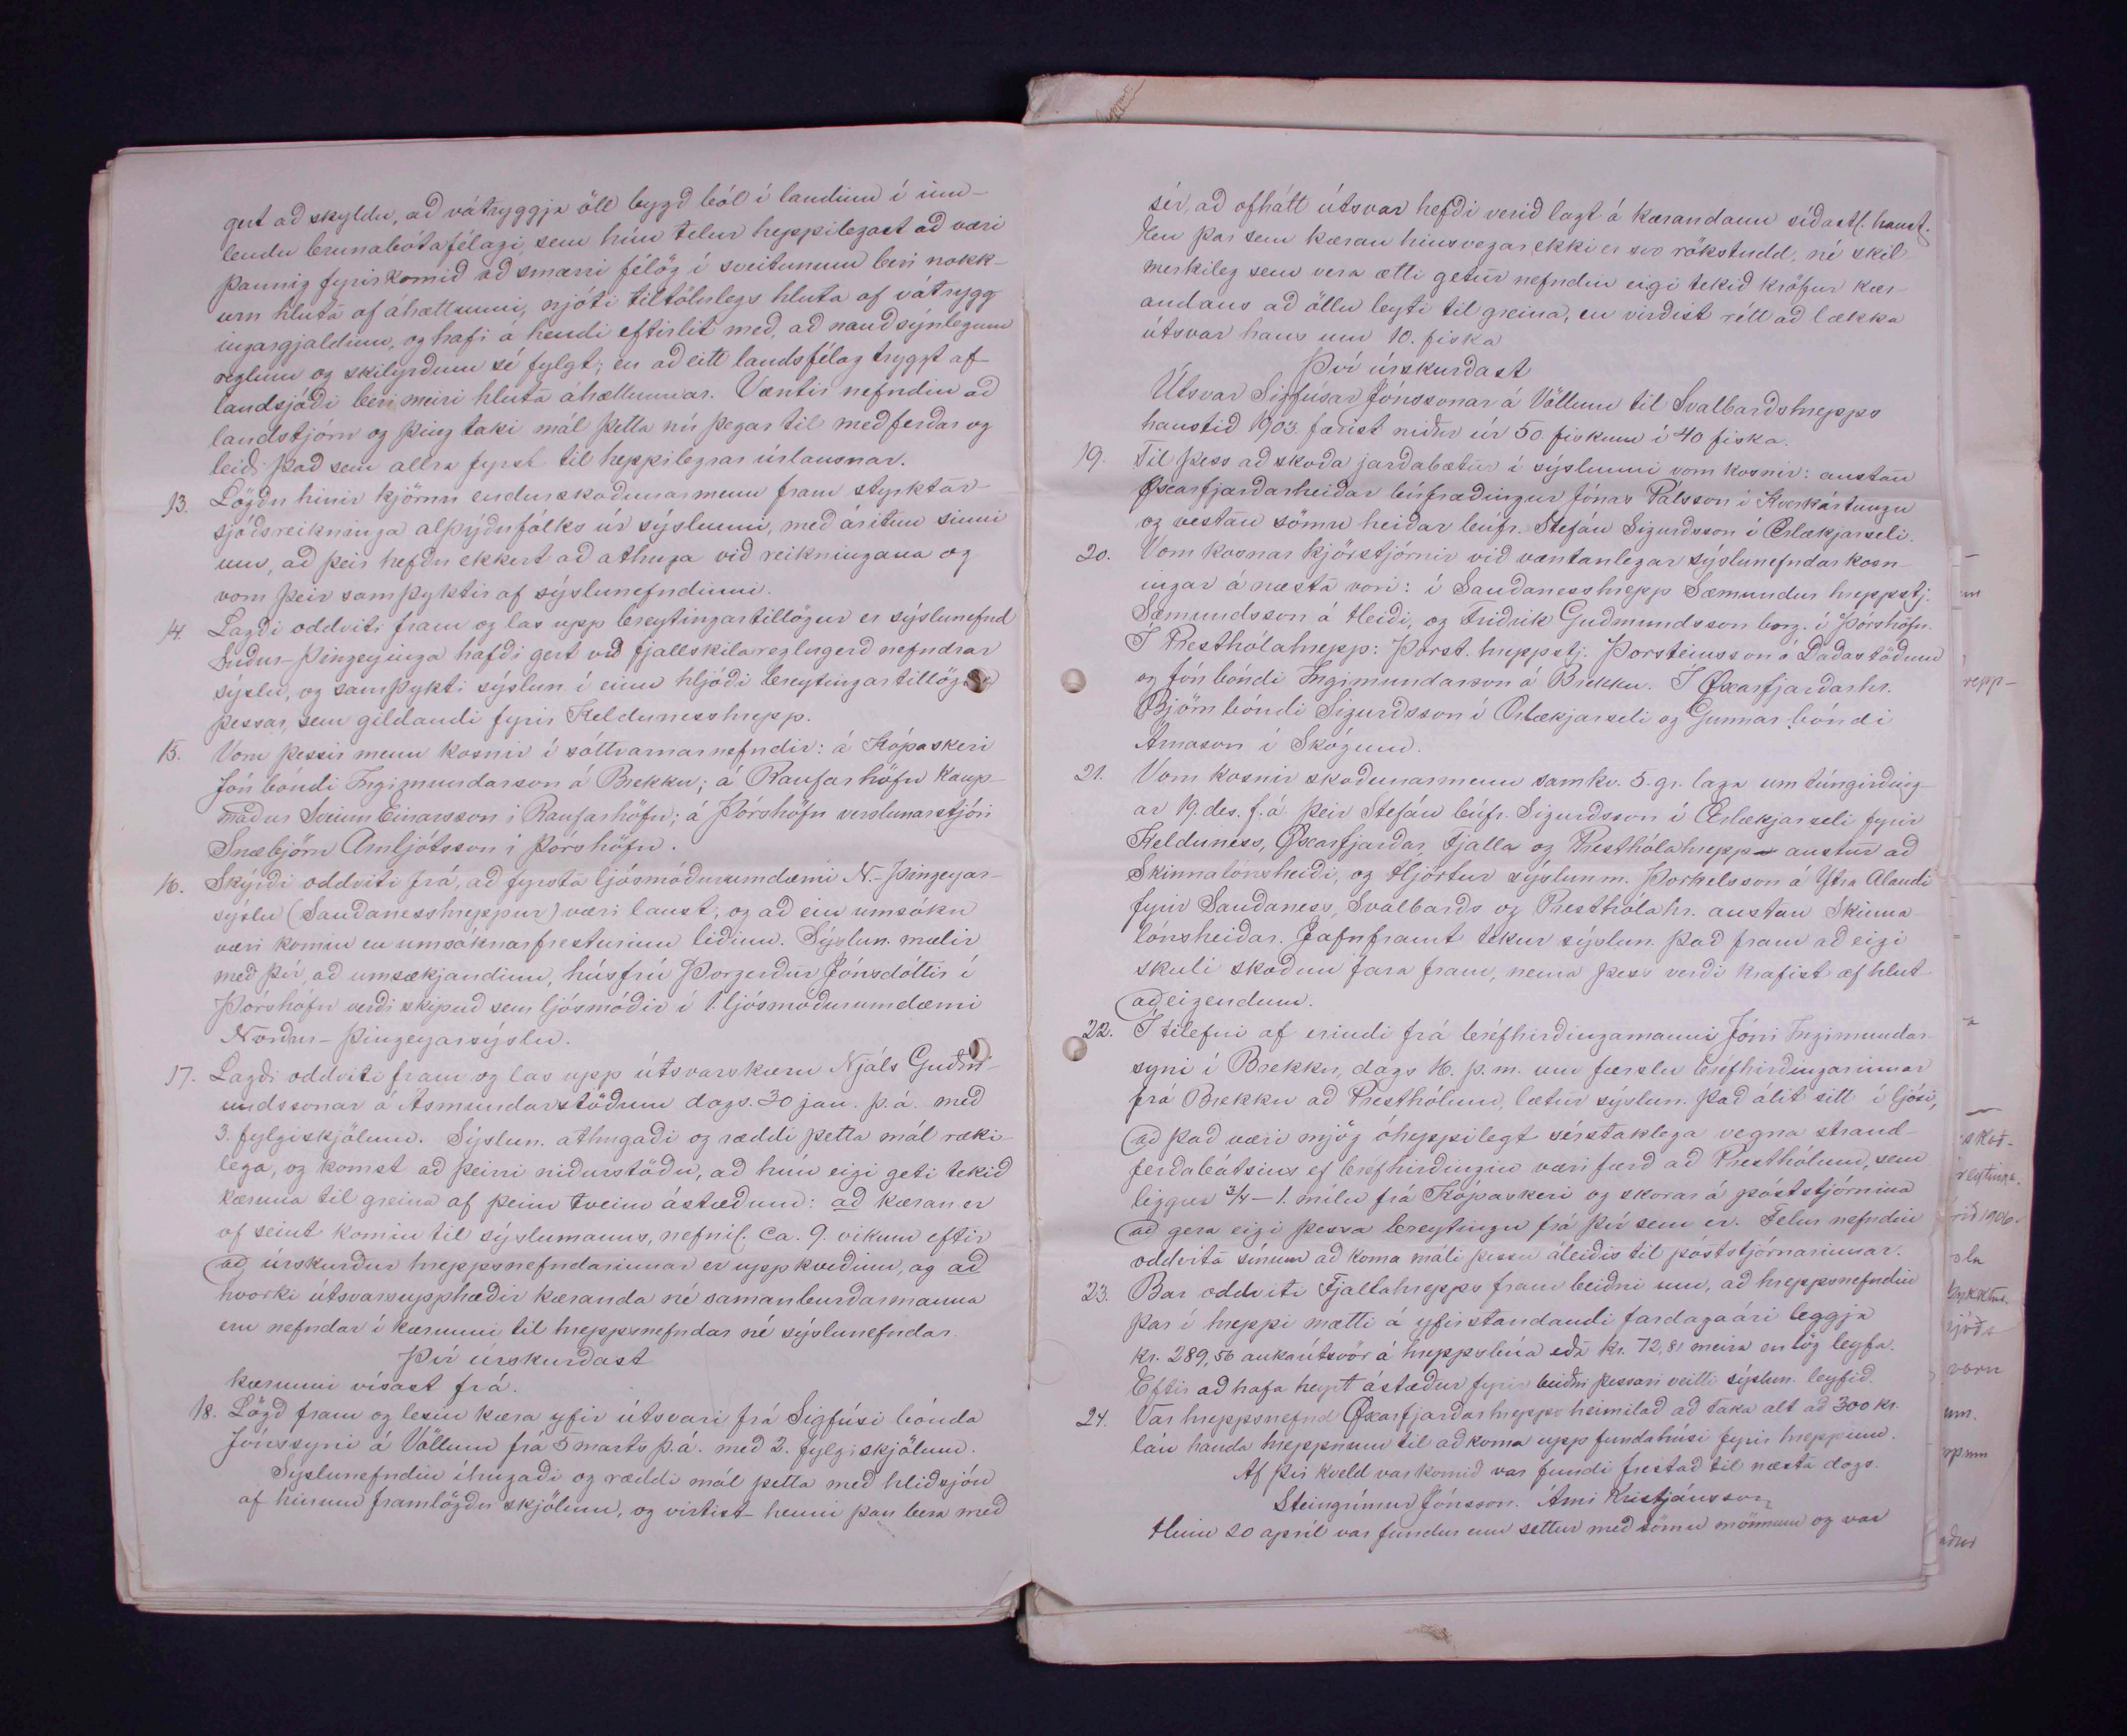 gert að skyldu, að vátryggja öll bygð ból í landinu í inn-
lendu brunabótafélagi, sem hún telur heppilegast að væri
þannig fyrirkomið að smærri félög í sveitunum beri nokk-
urn hluta af áhættunni, njóti tiltölulegs hluta af vátrygg
ingargjaldinu, og hafi á hendi eftirlit með, að nauðsýnlegum
reglum og skilyrðum sé fylgt; en að eitt landsfélag tryggt af
landsjóði beri meiri hluta áhættunnar. Væntir nefndin að
landstjórn og þing taki mál þetta nú þegar til meðferðar og
leiði það sem allra fyrst til heppilegrar úrlausnar.
13. Lögðu hinir kjörnu endurskoðunarmenn fram styrktar-
sjóðsreikninga alþýðufólks úr sýslunni, með áritun sinni
um, að þeir hefðu ekkert að athuga við reikningana og
voru þeir samþyktir af sýslunefndinni.
14. Lagði oddviti fram og las upp breytingartillögur er sýslunefnd
Suður-Þingeyinga hafði gert við fjallskilareglugerð nefndrar
sýslu, og samþykti sýslun. í einu hljóði breytingartillögur
þessar, sem gildandi fyrir Kelduneshrepp.
15. Voru þessir menn kosnir í sóttvarnarnefndir: á Kópaskeri
Jón bóndi Ingimundarson á Brekku; á Raufarhöfn kaup-
maður Sveinn Einarsson í Raufarhöfn; á Þórshöfn verslunarstjóri
Snæbjörn Arnljótsson í Þórshöfn.
16. Skýrði oddviti frá, að fyrsta ljósmóðurumdæmi N.-Þingeyar-
sýslu (Sauðanesshreppur) væri laust, og að ein umsókn
væri komin en umsóknarfresturinn liðinn. Sýslun. mælir
með því, að umsækjandinn, húsfrú Þorgerður Jónsdóttir í
Þórshöfn verði skipuð sem ljósmóðir í 1. ljósmóðurumdæmi
Norður-Þingeyarsýslu.
17. Lagði oddviti fram og las upp útsvarskæru Njáls Guðm-
undssonar á Ásmundarstöðum dags. 30 jan. þ.á. með
3. fylgiskjölum. Sýslun. athugaði og ræddi þetta mál ræki-
lega, og komst að þeirri niðurstöðu, að hún eigi geti tekið
kæruna til greina af þeim tveim ástæðum: að kæran er
of seint komin til sýslumanns, nefnil. ca. 9. vikum eftir
að úrskurður hreppsnefndarinnar er uppkveðinn, og að
hvorki útsvarsupphæðir kæranda né samanburðarmanna
eru nefndar í kærunni til hreppsnefndar né sýslunefndar.
Því úrskurðast
kærunni vísast frá.
18. Lögð fram og lesin kæra yfir útsvari frá Sigfúsi bónda
Jónssyni á Völlum frá 5 marts þ.á. með 2. fylgiskjölum.
Sýslunefndin íhugaði og ræddi mál þetta með hliðsjón
af hinum framlögðu skjölum, og virtist henni þau bera með
sér, að ofhátt útsvar hefði verið lagt á kærandann síðastl. haust.
En þar sem kæran hinsvegar ekki er svo rökstudd, né skil-
merkileg sem vera ætti getur nefndin eigi tekið kröfur kær-
andans að öllu leyti til greina, en virðist rétt að lækka
útsvar hans um 10. fiska
Því úrskurðast
Útsvar Sigfúsar Jónssonar á Völlum til Svalbarðshrepps
haustið 1903. færist niður úr 50. fiskum í 40 fiska.
19. Til þess að skoða jarðabætur í sýslunni voru kosnir: austan
Øxarfjarðarheiðar búfræðingur Jónas Pálsson í Kverkártungu
og vestan sömu heiðar búfr. Stefán Sigurðsson í Ærlækjarseli.
20. Voru kosnar kjörstjórnir við væntanlegar sýslunefndarkosn-
ingar á næsta vori: í Sauðanesshrepp Sæmundur hreppstj.
Sæmundsson á Heiði, og Friðrik Guðmundsson borg. í Þórshöfn.
Í Presthólahrepp: Þorst. hreppstj. Þorsteinsson á Daðastöðum
og Jón bóndi Ingimundarson á Brekku. Í Øxarfjarðarhr.
Björn bóndi Sigurðsson í Ærlækjarseli og Gunnar bóndi
Árnason í Skógum.
21. Voru kosnir skoðunarmenn samkv. 5. gr. laga um túngirðing-
ar 19. des. f.á. þeir Stefán búfr. Sigurðsson í Ærlækjarseli fyrir
Kelduness, Øxarfjarðar, Fjalla og Presthólahrepp austur að
Skinnalónsheiði, og Hjörtur sýslunm. Þorkelsson á Ytra Álandi
fyrir Sauðaness, Svalbarðs og Presthólahr. austan Skinna-
lónsheiðar. Jafnframt tekur sýslun. það fram að eigi
skuli skoðun fara fram, nema þess verði krafist af hlut-
aðeigendum.
22. Í tilefni af erindi frá bréfhirðingamanni Jóni Ingimundar
syni í Brekku, dags 16. þ.m. um færslu bréfhirðingarinnar
frá Brekku að Presthólum, lætur sýslun. það álit sitt í ljósi,
að það væri mjög óheppilegt sérstaklega vegna strand-
ferðabátsins ef bréfhirðingin væri færð að Presthólum, sem
liggur 3/4 – 1. mílu frá Kópaskeri og skorar á póststjórnina
að gera eigi þessa breytingu frá því sem er. Felur nefndin
oddvita sínum að koma máli þessu áleiðis til póststjórnarinnar.
23. Bar oddviti Fjallahrepps fram beiðni um, að hreppsnefndin
þar í hreppi mætti á yfirstandandi fardagaári leggja
kr. 289,56 aukaútsvör á hreppsbúa eða kr. 72,81 meira en lög leyfa.
Eftir að hafa heyrt ástæður fyrir beiðni þessari veitti sýslun. leyfið.
24. Var hreppsnefnd Øxarfjarðarhrepps heimilað að taka alt að 300 kr.
lán handa hreppnum til að koma upp fundahúsi fyrir hreppinn.
Af því kveld var komið var fundi frestað til næsta dags.
Steingrímur Jónsson. Árni Kristjánsson
Hinn 20 apríl var fundur enn settur með sömu mönnum og var